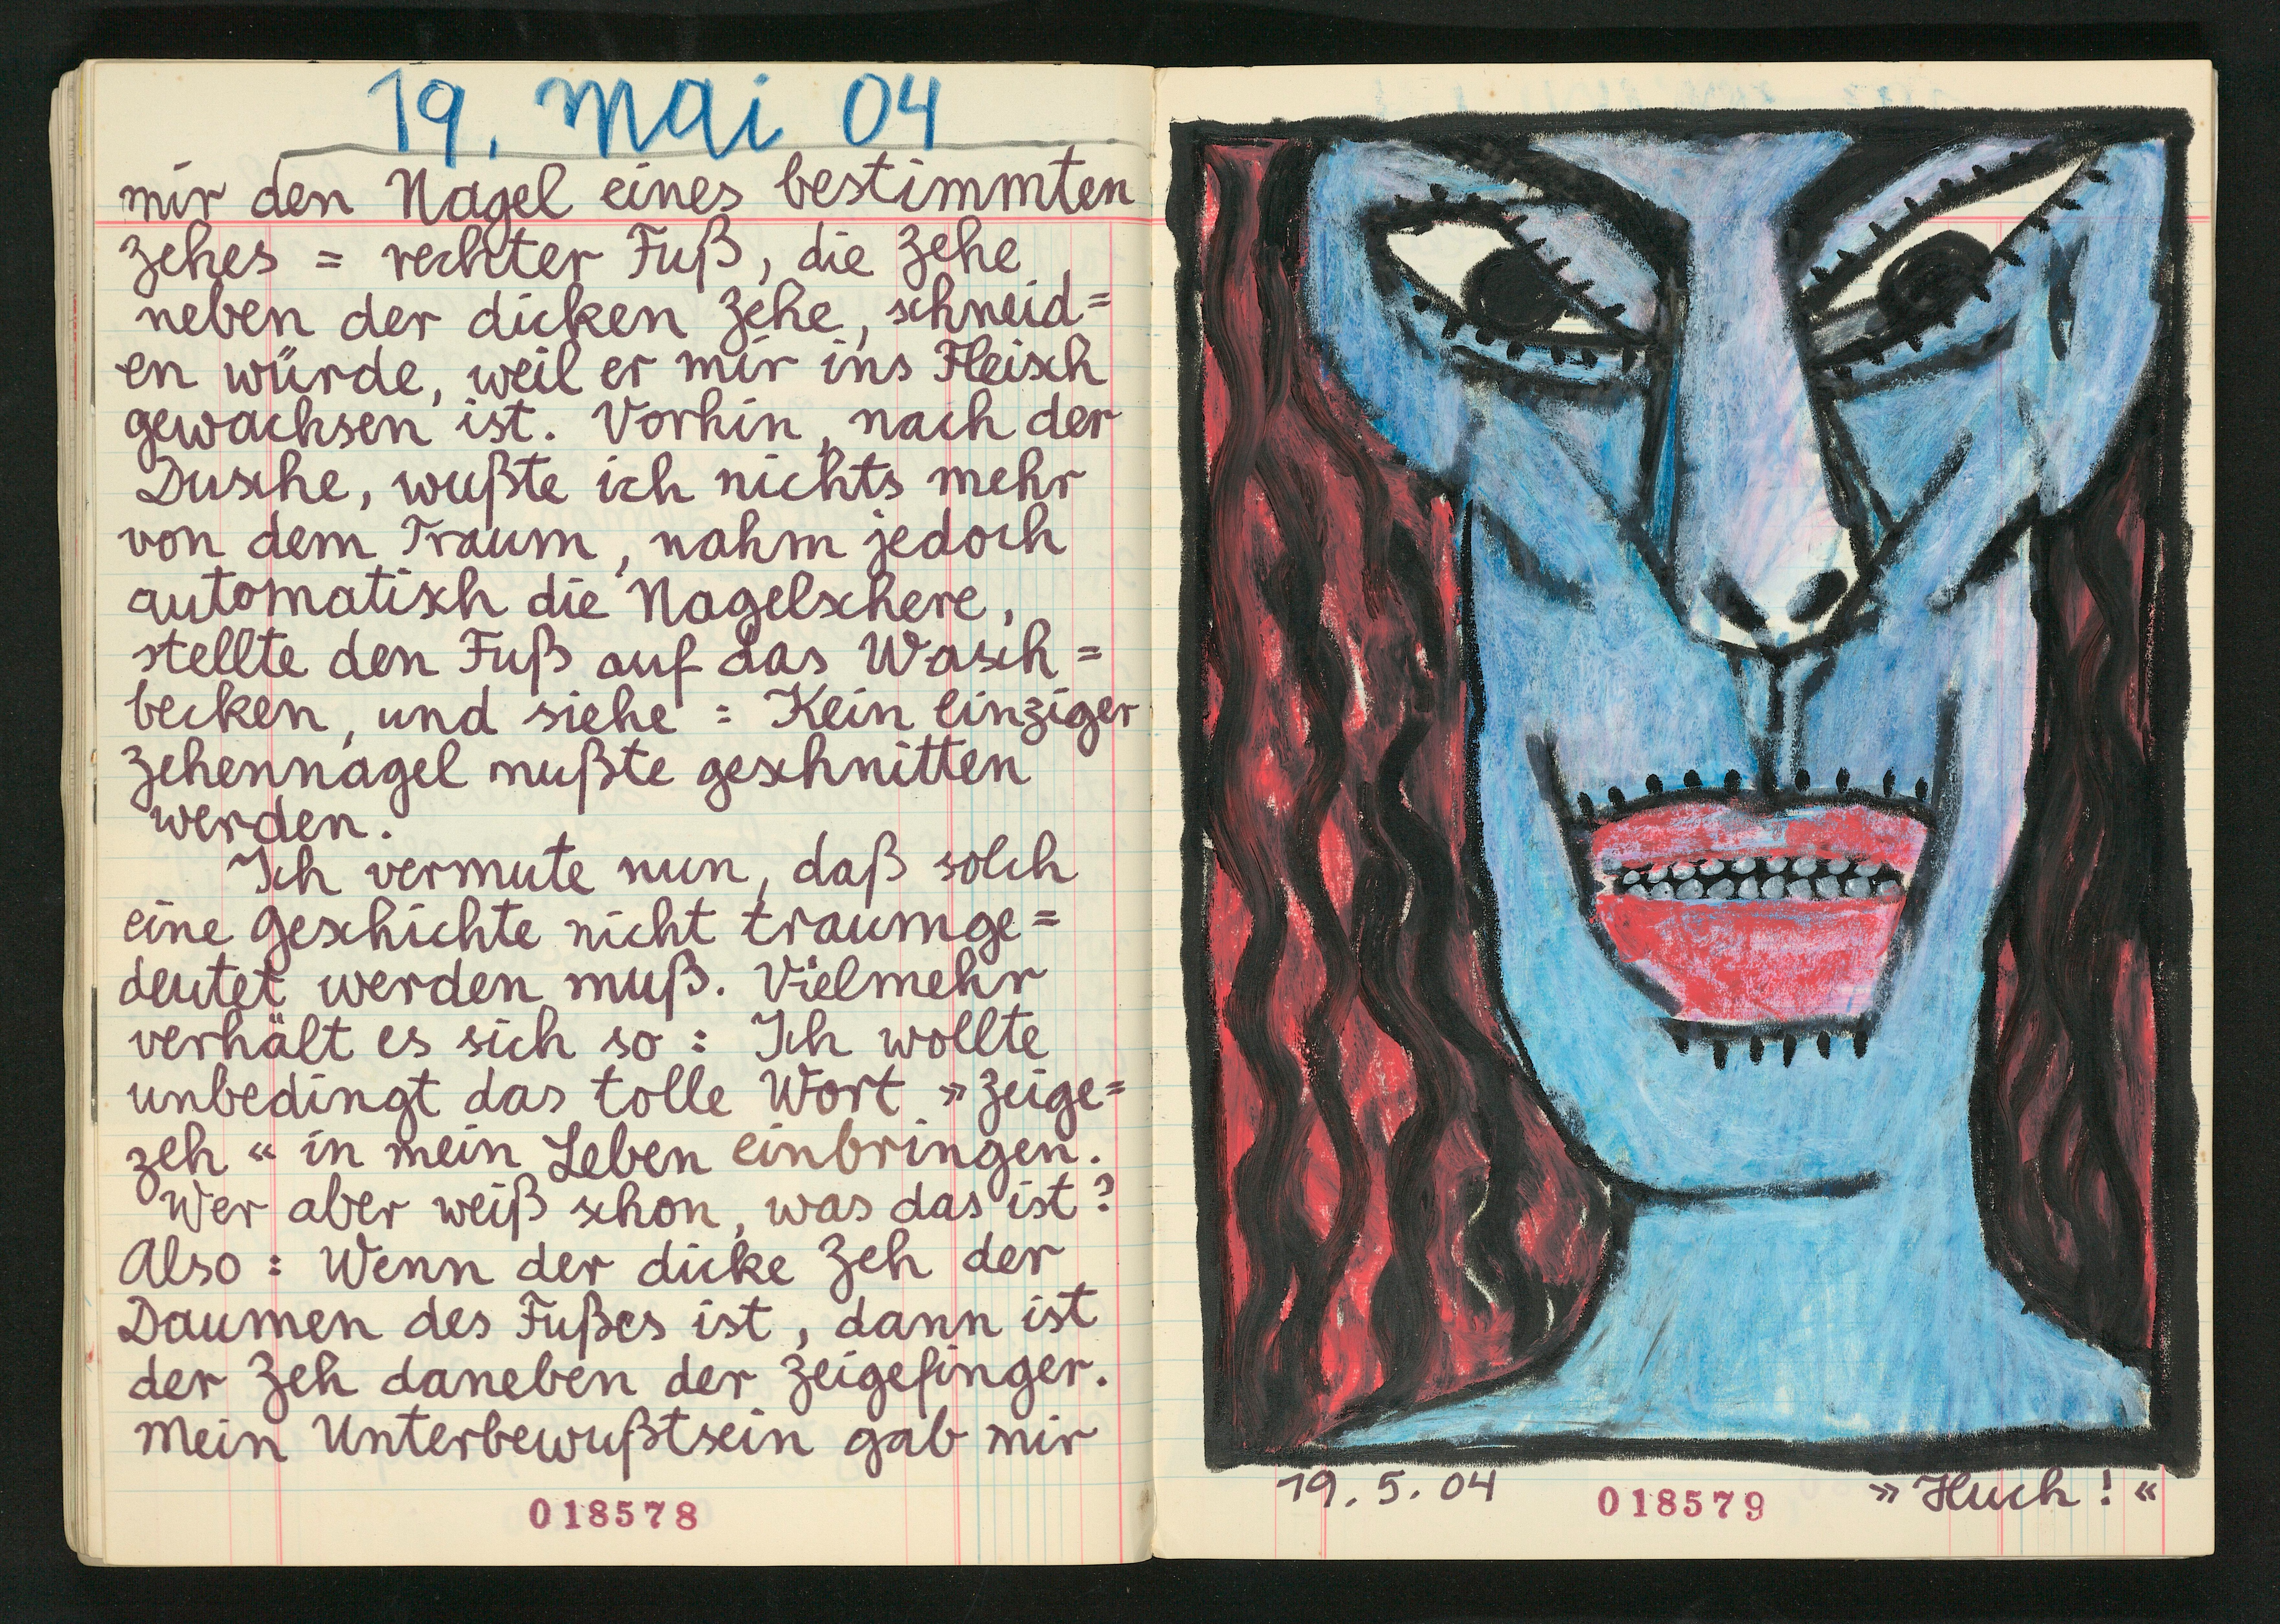 19. Mai 04
mir den Nagel eines bestimmten
Zehes = rechter Fuß, die Zehe
neben der dicken Zehe, schneid=
en würde, weil er mir ins Fleisch
gewachsen ist. Vorhin, nach der
Dusche, wußte ich nichts mehr
von dem Traum, nahm jedoch
automatisch die Nagelschere,
stellte den Fuß auf das Wasch=
becken, und siehe: Kein einziger
Zehennagel mußte geschnitten
werden.
Ich vermute nun, daß solch
eine Geschichte nicht traumge=
deutet werden muß. Vielmehr
verhält es sich so: Ich wollte
unbedingt das tolle Wort »Zeige=
zeh« in mein Leben einbringen.
Wer aber weiß schon, was das ist?
Also: Wenn der dicke Zeh der
Daumen des Fußes ist, dann ist
der Zeh daneben der Zeigefinger.
Mein Unterbewußtsein gab mir
018578
19.5.04
018579
»Huch!«